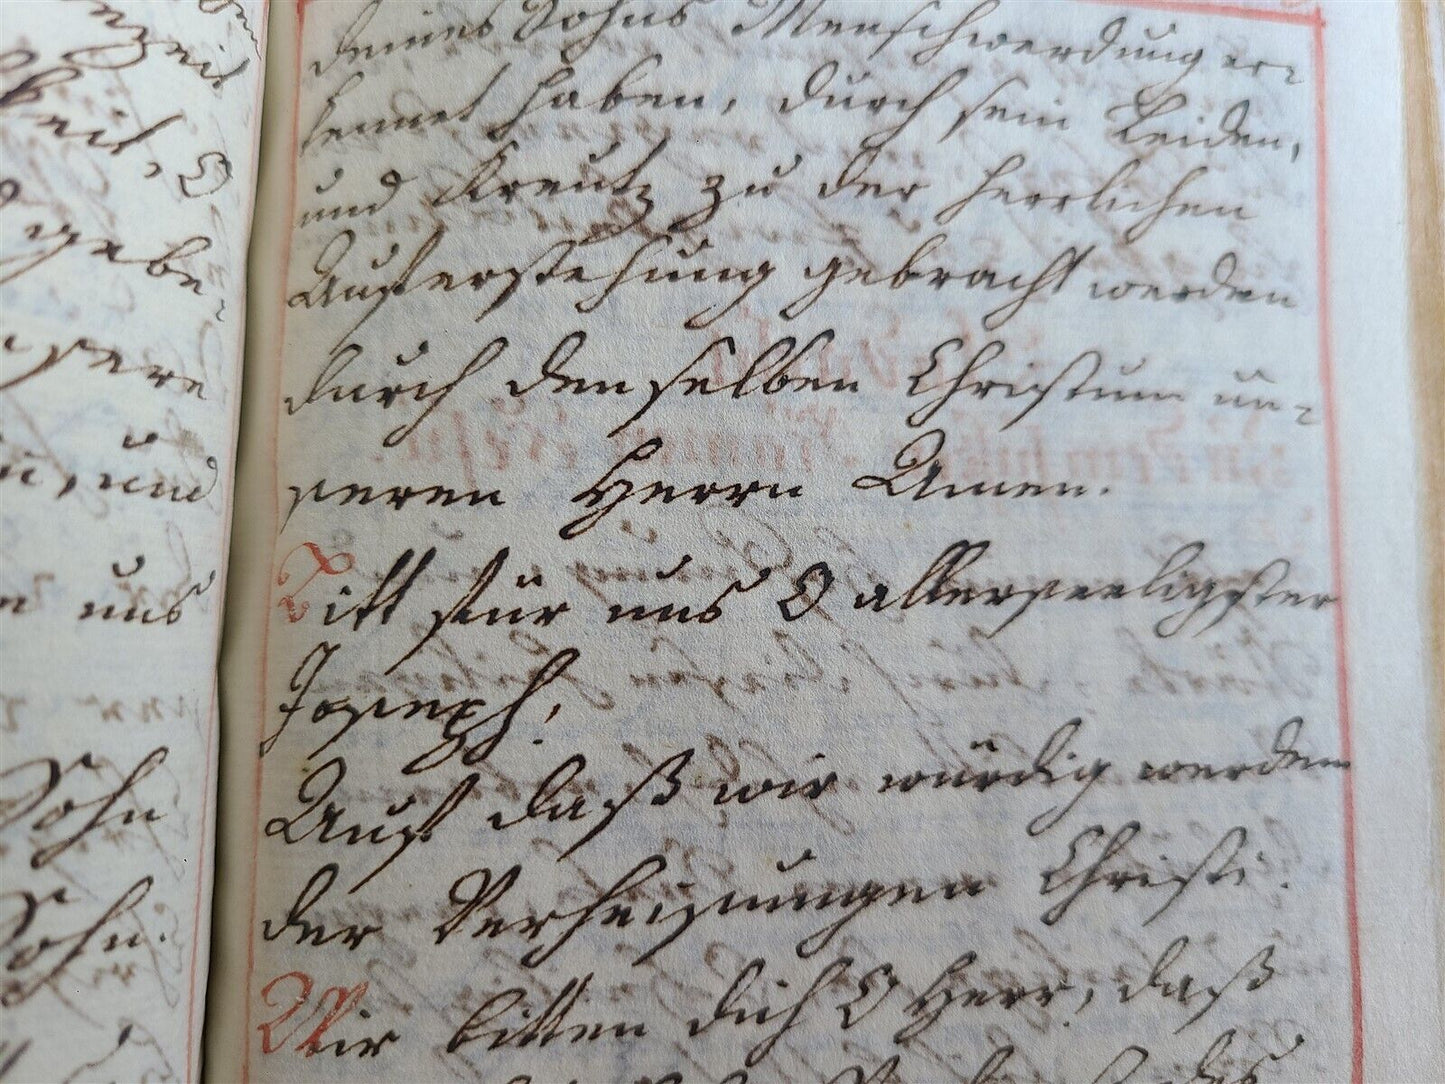 zeit
keit, O
gebe-
sere
, und
uns
Sohn
Sohn.
deines Sohns Menschwerdung er-
kennet haben, durch sein Leiden,
und Kreutz zu der herrlichen
Aufferstehung gebracht werden
durch denselben Christum un-
seren Herrn Amen.
Bitt für uns O allerseeligster
Joseph,
Auf daß wir würdig werden
der Verheisungen Christi.
Wir bitten dich O Herr, daß